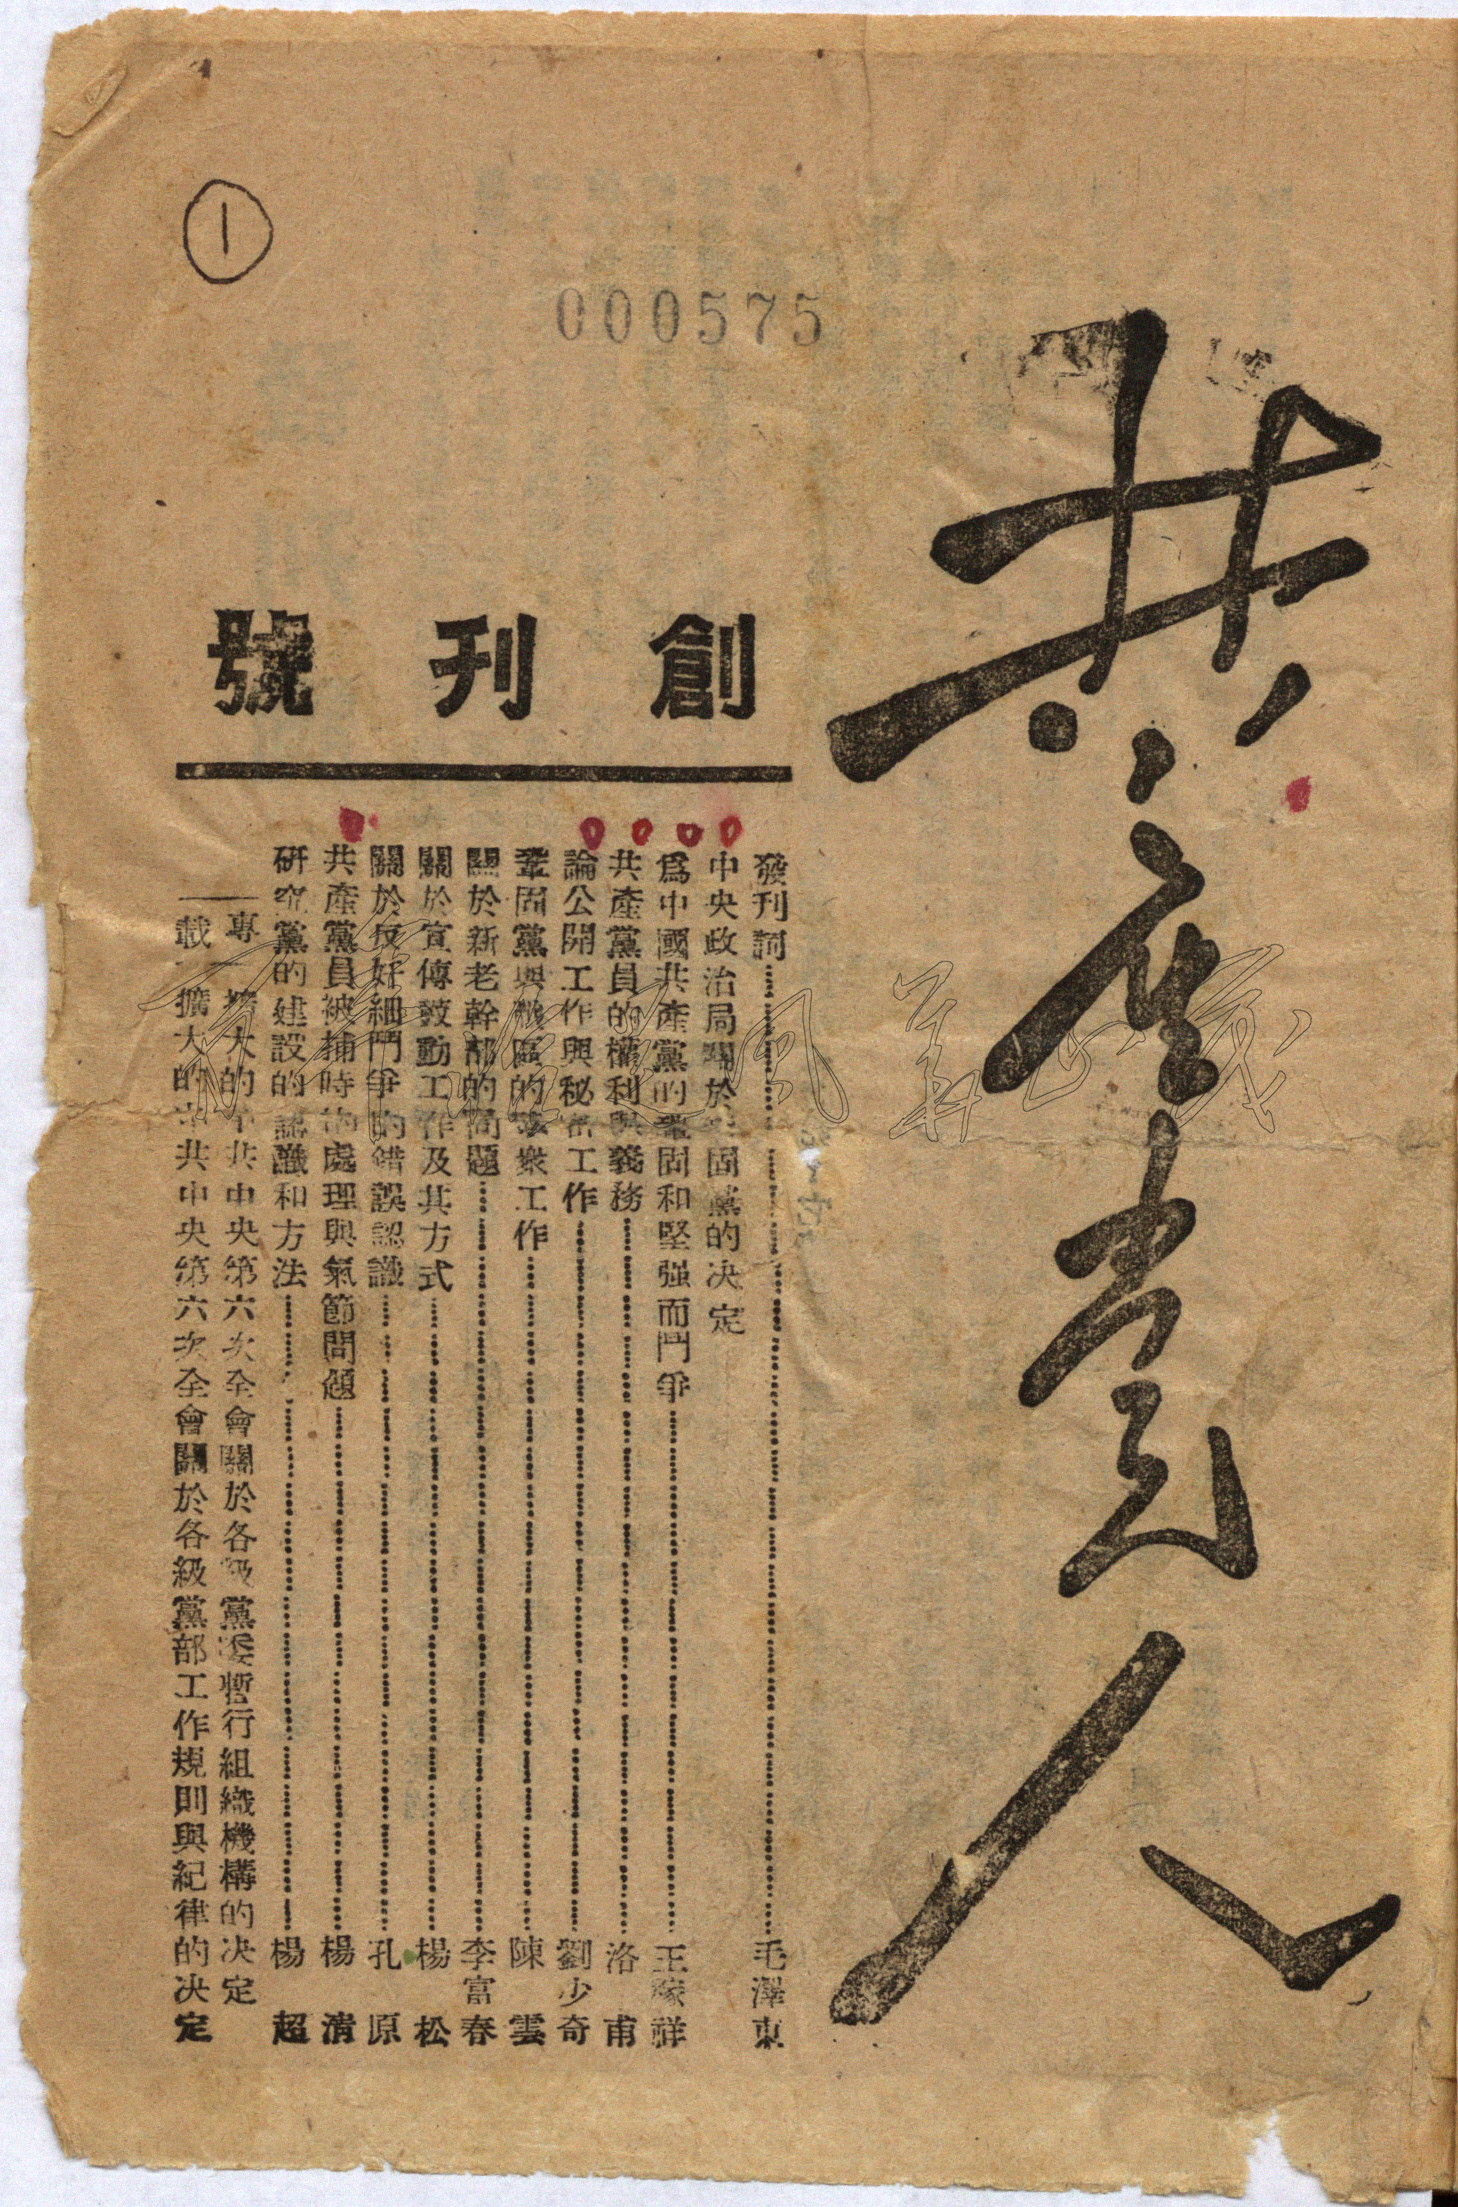 共產黨人
①
000575
創刊號
發刊詞……毛澤東
中央政治局關於鞏固黨的決定
爲中國共產黨的鞏固和堅强而鬥爭……王稼祥
共產黨員的權利與義務……洛甫
論公開工作與秘密工作……劉少奇
鞏固黨與戰區的羣衆工作……陳雲
關於新老幹部的問題……李富春
關於宣傳鼓動工作及其方式……楊松
關於反奸細鬥爭的錯誤認識……孔原
共產黨員被捕時的處理與氣節問題……楊清
研究黨的建設的認識和方法……楊超
專載
擴大的中共中央第六次全會關於各級黨委暫行組織機構的決定
擴大的中共中央第六次全會關於各級黨部工作規則與紀律的決定